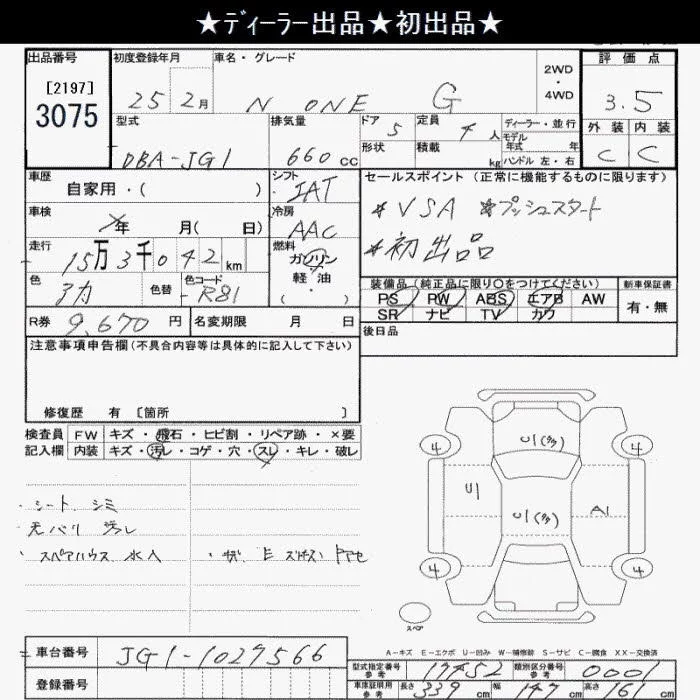 ★ディーラー出品★初出品★
出品番号 [2197] 3075
初度登録年月 25 2月
車名・グレード N ONE G
2WD・4WD
評価点 3.5
外装 内装
C C
型式 DBA-JG1
排気量 660 cc
ドア 5 定員 4人
形状 積載 kg
ディーラー・並行
モデル年式 年
ハンドル 左・右
車歴 自家用・( )
シフト IAT
セールスポイント(正常に機能するものに限ります)
車検 年 月( 日)
冷房 AAC
*VSA *プッシュスタート
*初出品
走行 15万3千042km
燃料 ガソリン 軽油
色 アカ 色替 色コード R81
装備品(純正品に限り○をつけてください) 新車保証書
PS PW ABS エアB AW 有・無
SR ナビ TV カワ
R券 9,670円 名変期限 月 日
後日品
注意事項申告欄(不具合内容等は具体的に記入して下さい)
修復歴 有 [箇所 ]
検査員 FW キズ・飛石・ヒビ割・リペア跡・×要
記入欄 内装 キズ・汚レ・コゲ・穴・スレ・キレ・破レ
・シート シミ
・天バリ 汚レ
・スペアハウス 水入
4 U1(多) 4
U1 U1(多) A1
4 4
スペア
A-キズ E-エクボ U-凹み W-補修跡 S-サビ C-腐食 XX-交換済
車台番号 JG1-1027566
登録番号
型式指定番号 参考 17452 類別区分番号 参考 0001
車庫証明用 参考 長さ 339cm 幅 147cm 高さ 161cm